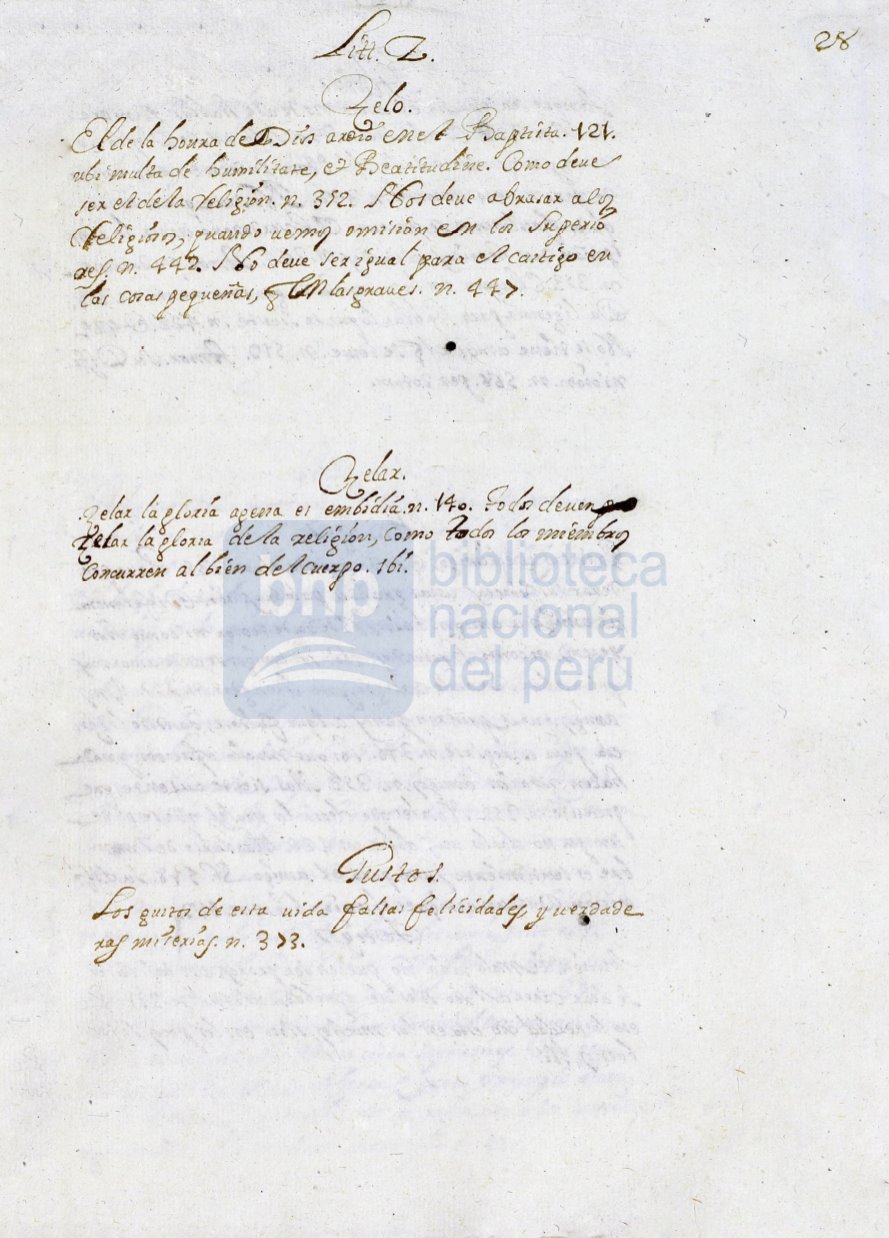 28
Litt. Z.
Zelo.
El de la honra de Dios ardio en el Baptista. 121.
ubi multa de humilitate, et Beatitudine. Como deve
ser el de la religion. n. 352. Nos deve abrasar a los
Religiosos, quando vemos omision en los Superio
res. n. 442. No deve ser igual para el castigo en
las cosas pequeñas, q en las graves. n. 447.
Zelar.
Zelar la gloria agena es embidia. n. 140. todos deven
zelar la gloria de la religion, como todos los miembros
concurren al bien del cuerpo. ibi.
bnp biblioteca
nacional
del perú
Gustos.
Los gustos de esta vida falsas felicidades y verdade
ras miserias. n. 373.